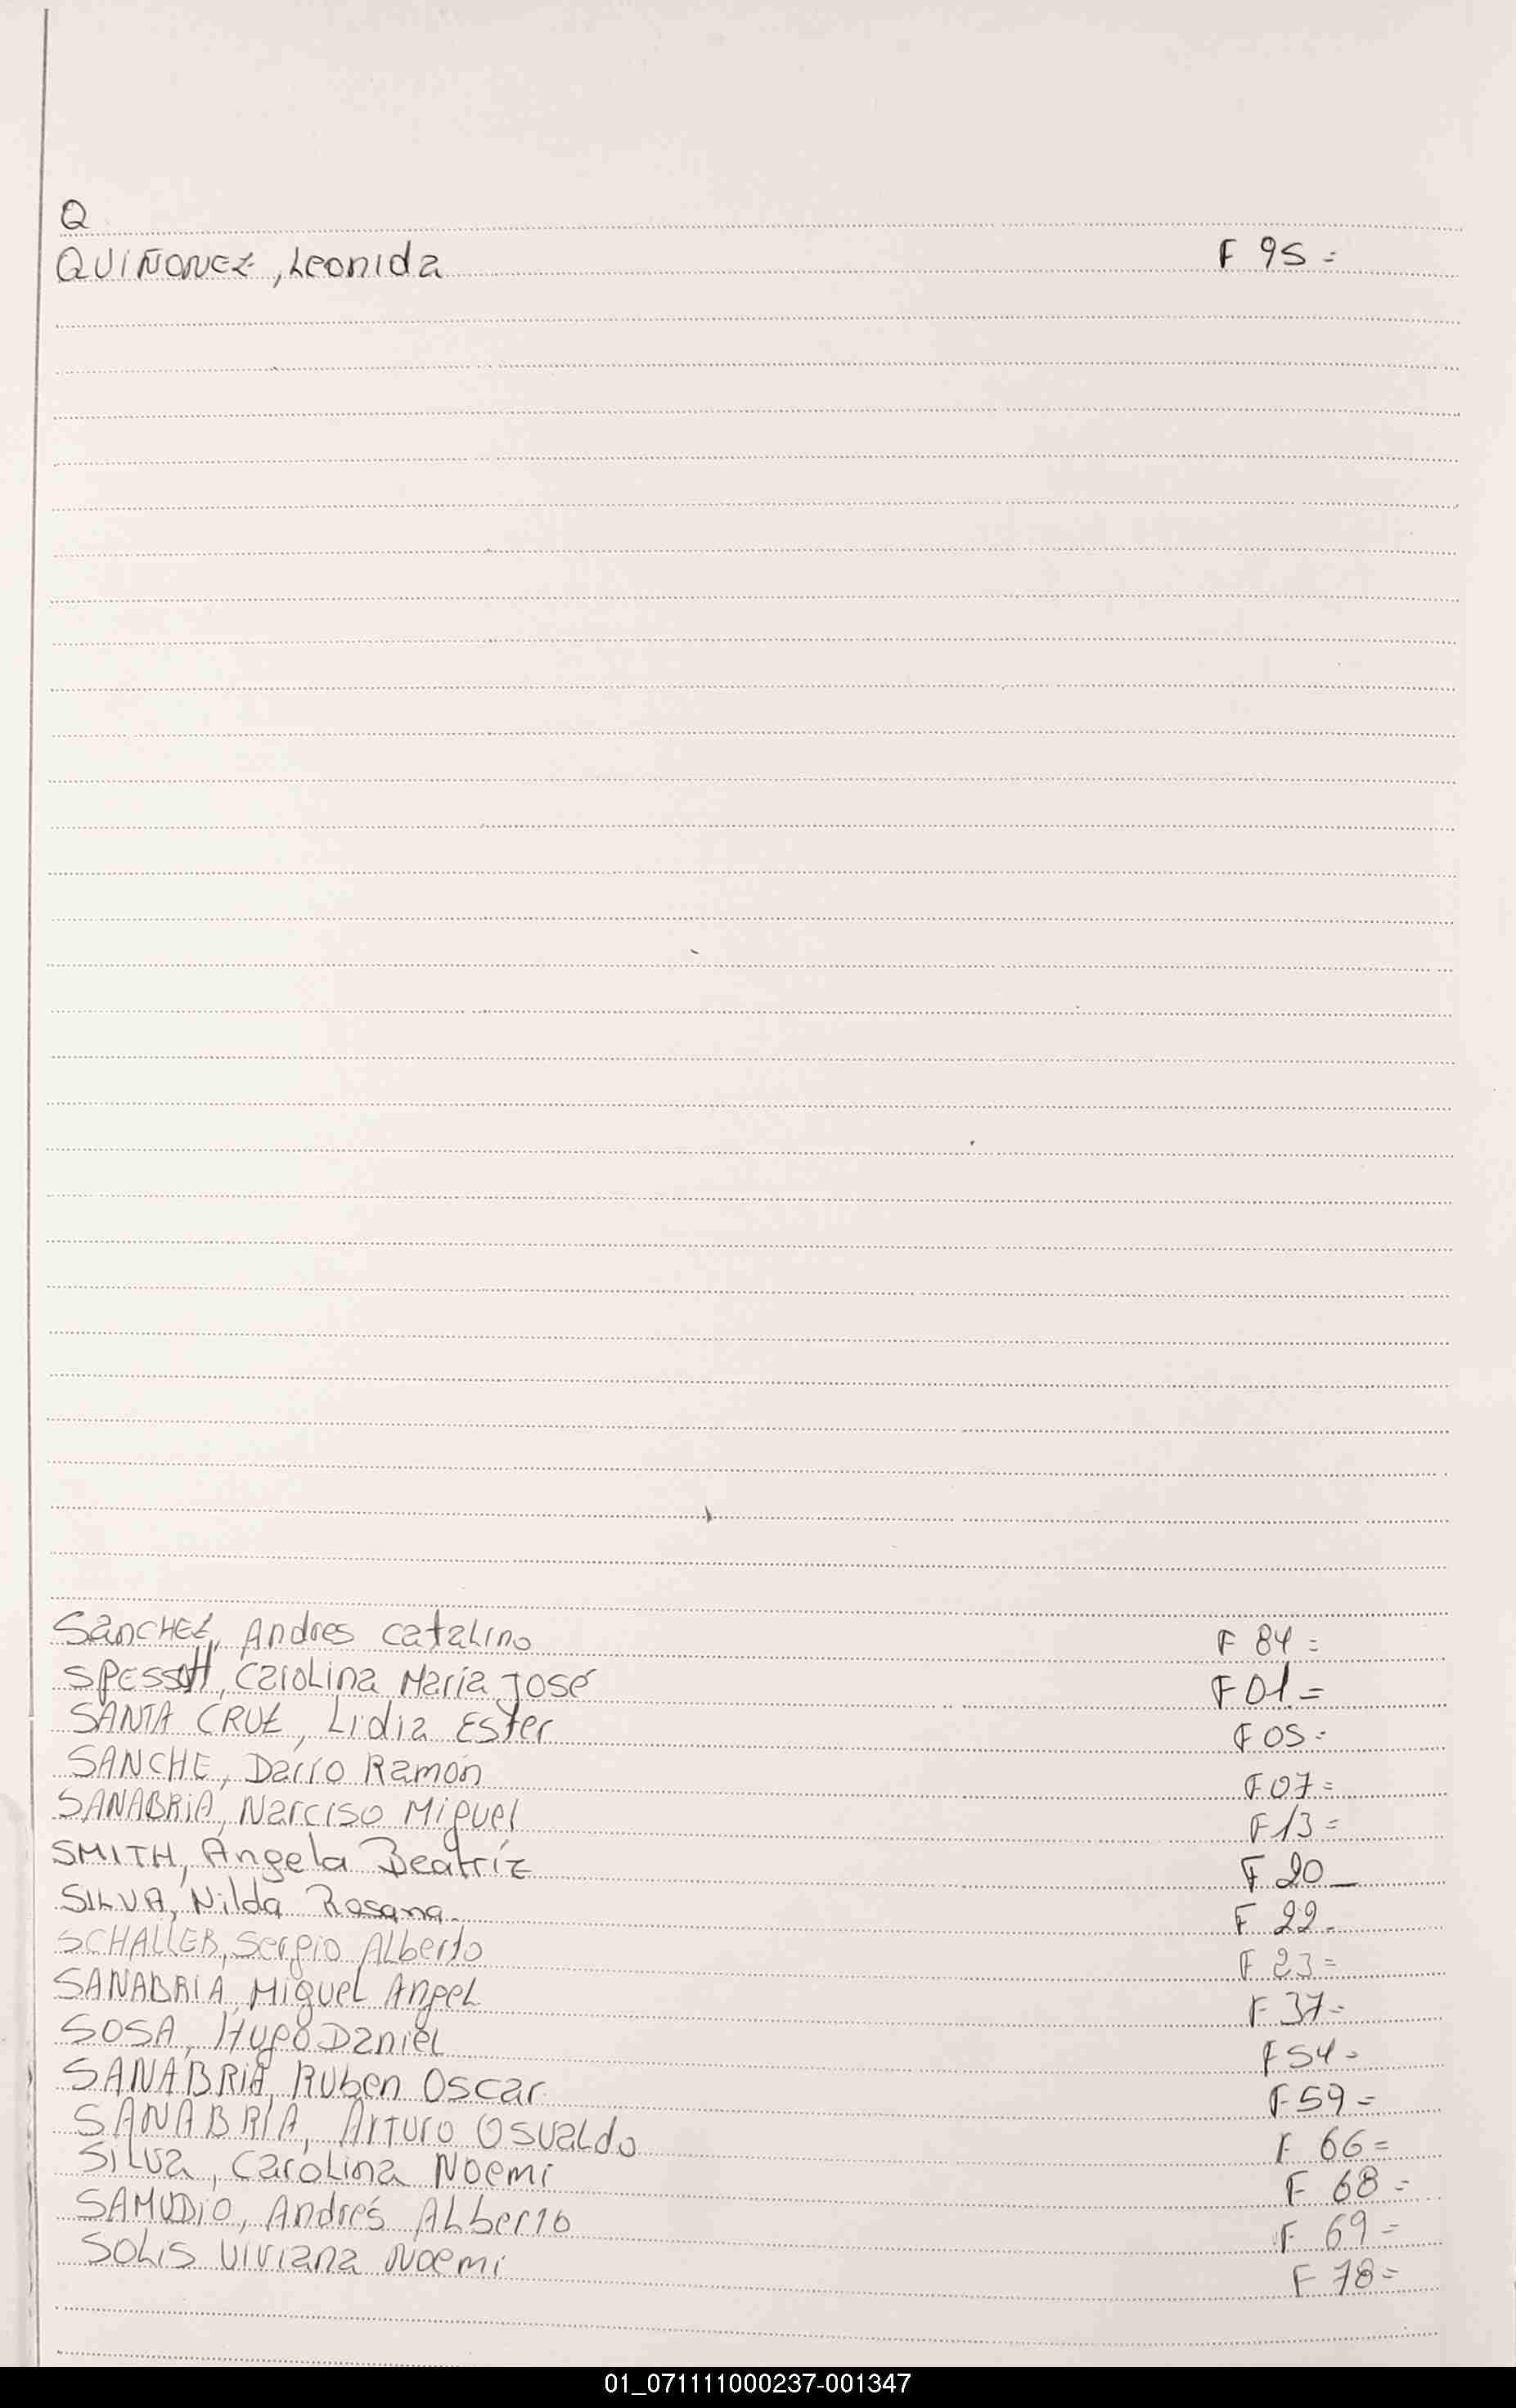 Q
QUIÑONEZ, Leonida F 95=
SanCHEZ, Andres CataLino F 84=
SPESSOtt, CaroLina María José F 01.=
SANTA CRUZ, Lidia Ester F 05=
SANCHE, Darío Ramón F 07=
SANABRiA, Narciso Miguel F 13=
SMITH, Angela Beatríz F 20_
SILVA, Nilda Rosana. F 22.
SCHALLER, Sergio ALberto F 23=
SANABRIA, MigueL AngeL F 37=
SOSA, Hugo Daniel F 54=
SANABRiA, Ruben Oscar F 59=
SANABRIA, Arturo OsvaLdo F 66=
SiLva, CaroLina Noemi F 68=
SAMUDiO, Andrés ALberto F 69=
SOLiS Viviana Noemi F 78=
01_071111000237-001347